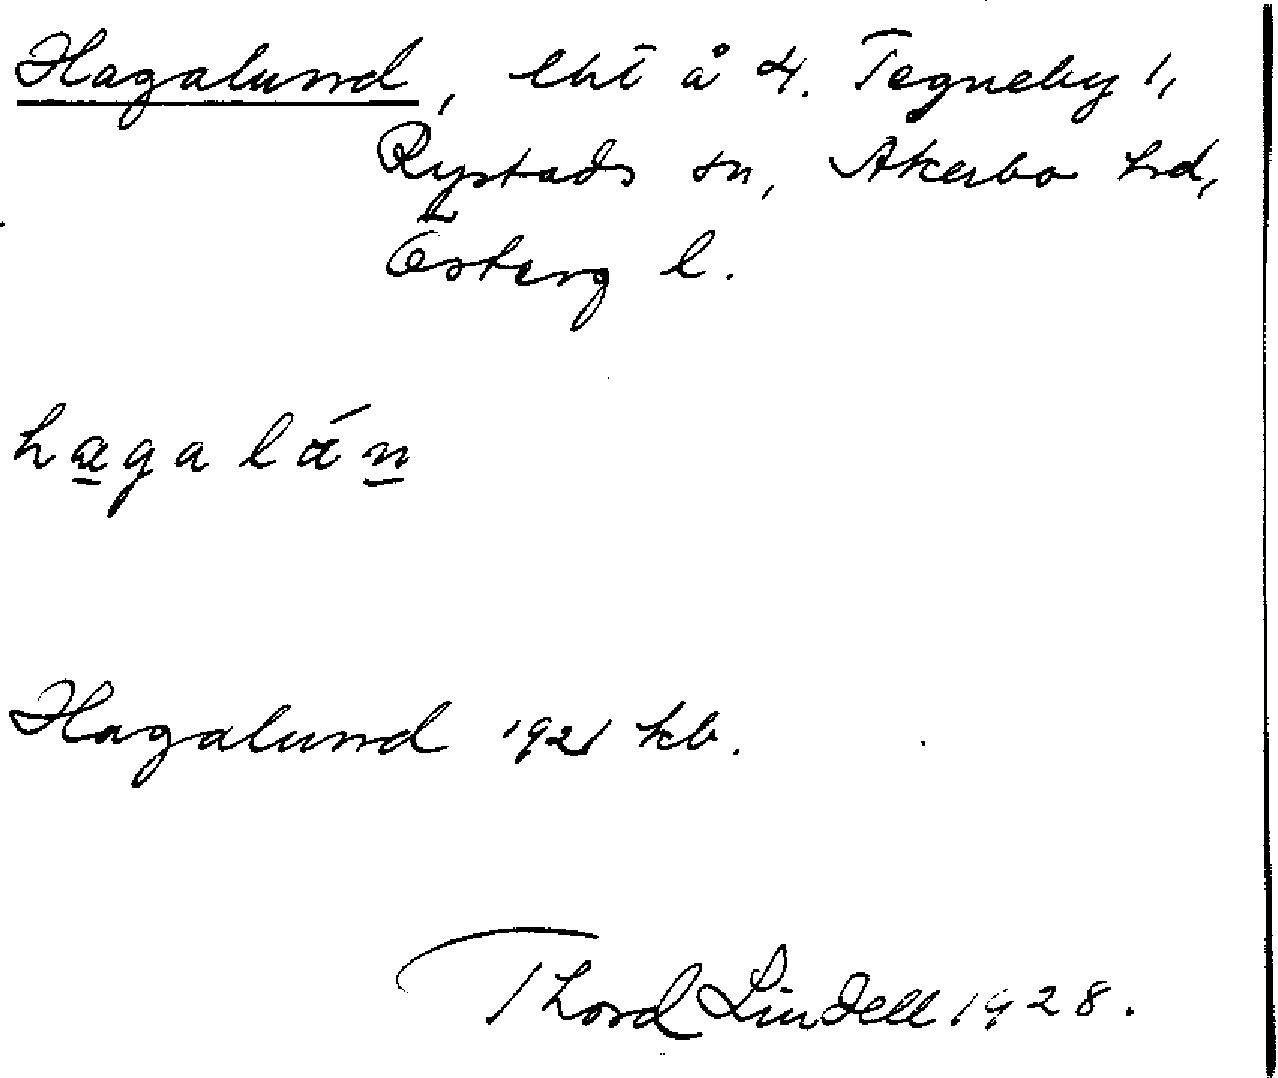 Hagalund, lht å St. Tegneby 1,
Rystads sn, Åkerbo hd,
Österg l.
hagalán
Hagalund 1921 kb.
Thord Lindell 1928.